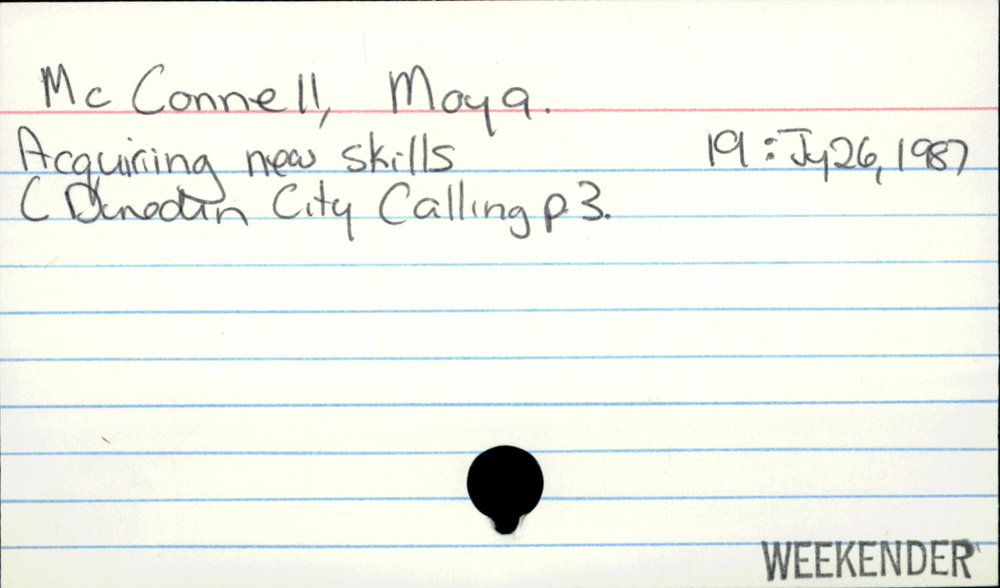 Mc Connell, Moya.
Acquiring new skills 19 : Jy 26, 1987
( Dunedin City Calling p 3.
WEEKENDER